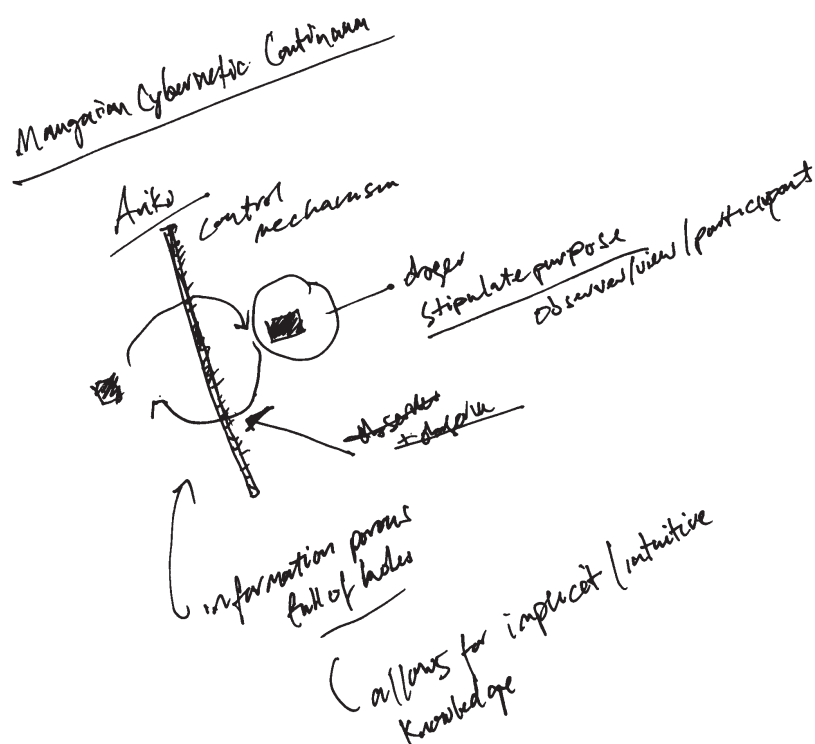 Mangarian Cybernetic Continuum
Ariko
control
mechanism
stipulate purpose
observer/view/participant
information porous
full of holes
allows for implicit/intuitive
knowledge